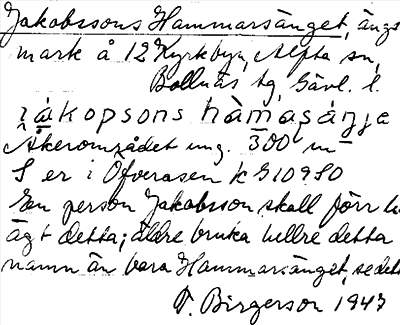 Jakobssons Hammarsänget, ängs
mark å 12 Kyrkbyn, Alfta sn,
Bollnäs tg, Gävl. l.
jàkopsons hàmaṣáŋja
Åkerområdet ung. 300 m
S er i Öfverasen k G109 SO
En person Jakobsson skall förr
ägt detta; äldre bruka hellre detta
namn än bara Hammarsänget, se det
T. Birgerson 1943